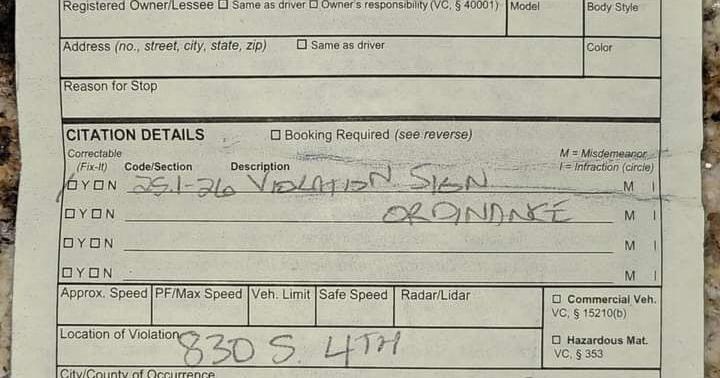 Registered Owner/Lessee ☐ Same as driver ☐ Owner's responsibility (VC, § 40001) Model Body Style
Address (no., street, city, state, zip) ☐ Same as driver Color
Reason for Stop
CITATION DETAILS ☐ Booking Required (see reverse)
Correctable M = Misdemeanor
(Fix-It) Code/Section Description I = Infraction (circle)
☐ Y ☐ N 25.1-26 VIOLATION SIGN M I
☐ Y ☐ N ORDINANCE M I
☐ Y ☐ N M I
☐ Y ☐ N M I
Approx. Speed PF/Max Speed Veh. Limit Safe Speed Radar/Lidar ☐ Commercial Veh.
VC, § 15210(b)
Location of Violation 830 S. 4TH ☐ Hazardous Mat.
VC, § 353
City/County of Occurrence